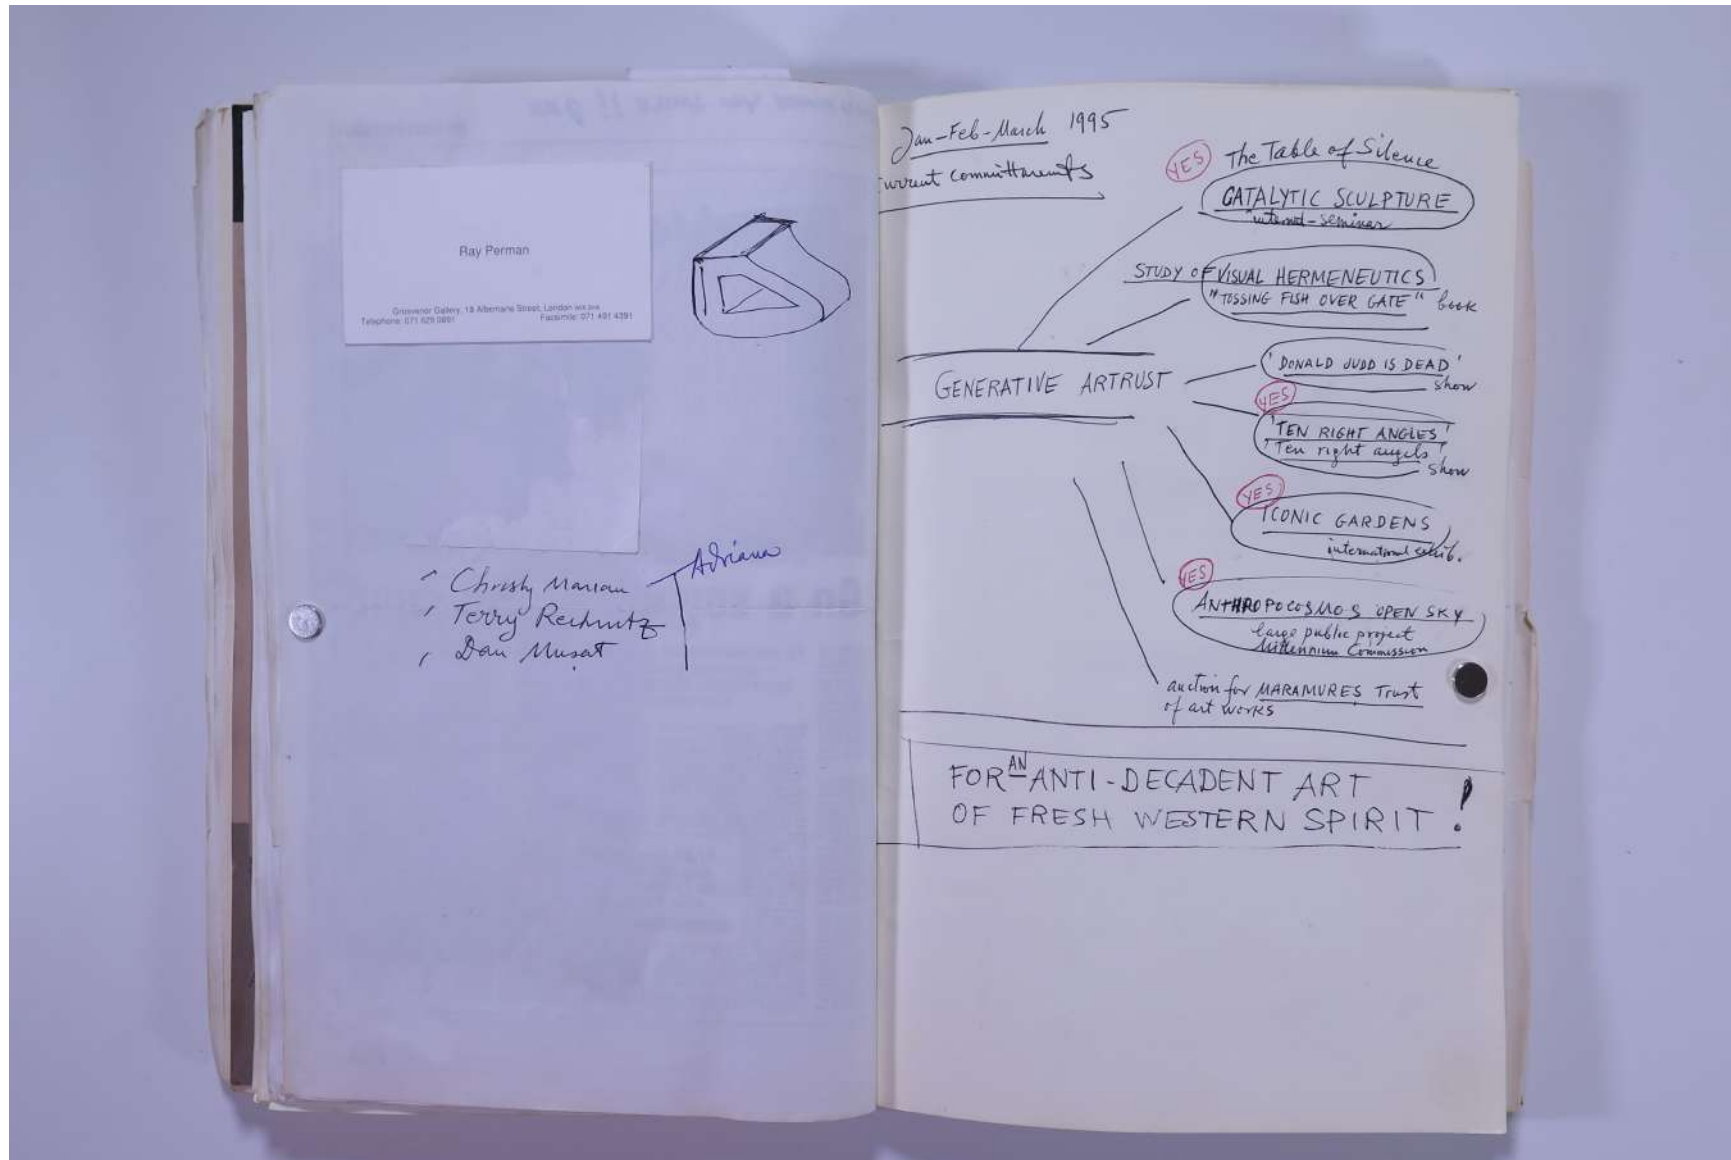 Ray Perman
Grosvenor Gallery, 18 Albemarle Street, London
Telephone: 071 629 0891 Facsimile: 071 491 4391
Adriana
Christy Marian
Terry
Dan Musat
Jan-Feb-March 1995
Current committaments
YES The Table of Silence
CATALYTIC SCULPTURE
internat-seminar
STUDY OF VISUAL HERMENEUTICS
"TOSSING FISH OVER GATE" book
GENERATIVE ARTRUST
'DONALD JUDD IS DEAD'
show
YES
'TEN RIGHT ANGLES'
'Ten right angels'
show
YES
ICONIC GARDENS
international exhib.
YES
ANTHROPOCOSMOS OPEN SKY
large public project
Millennium Commission
auction for MARAMURES Trust
of art works
FOR AN ANTI-DECADENT ART
OF FRESH WESTERN SPIRIT!